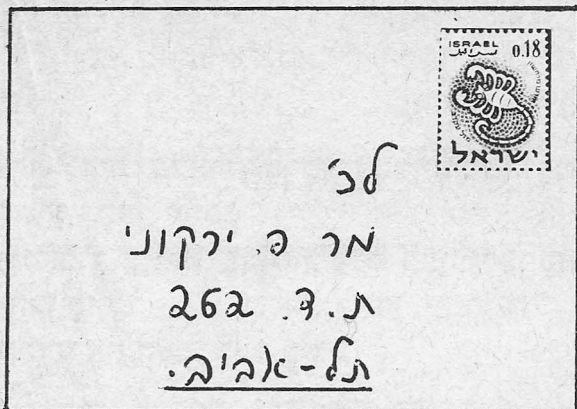 ISRAEL 0.18
اسرائيل
ישראל
לכ'
מר פ. ירקוני
ת.ד. 262
תל-אביב.